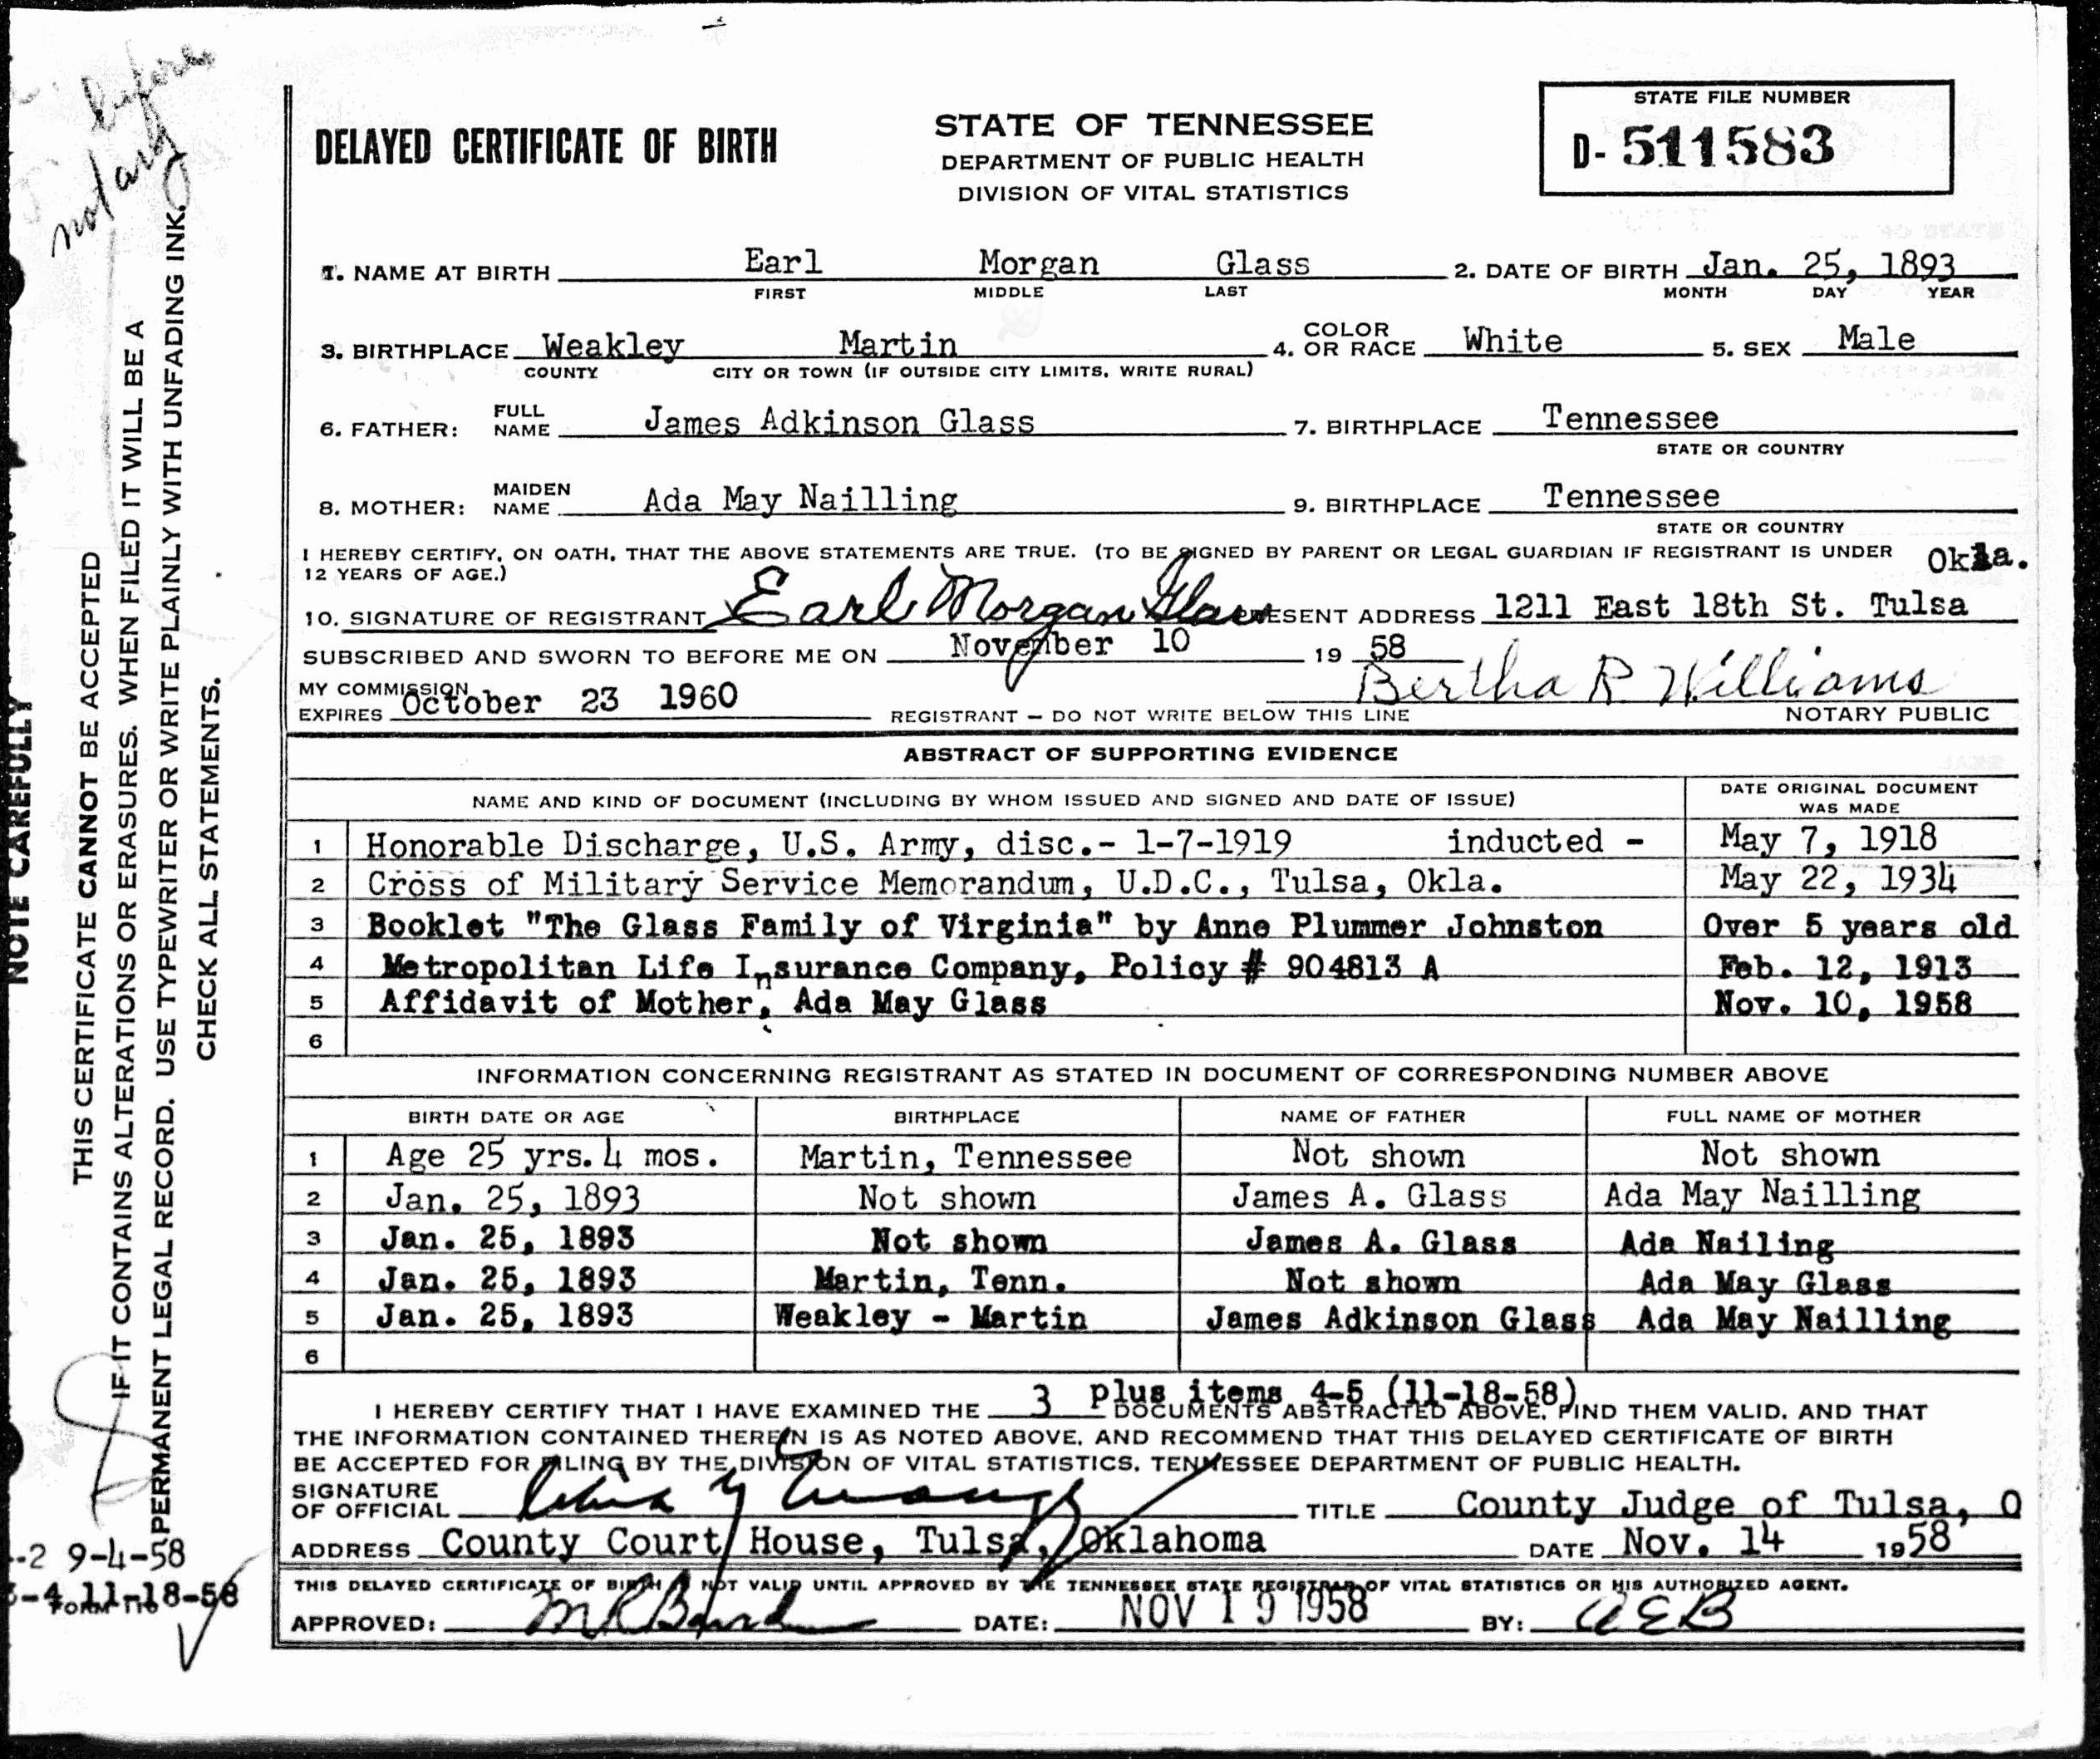 before
notary
DELAYED CERTIFICATE OF BIRTH
STATE OF TENNESSEE
DEPARTMENT OF PUBLIC HEALTH
DIVISION OF VITAL STATISTICS
STATE FILE NUMBER
D- 511583
1. NAME AT BIRTH Earl Morgan Glass 2. DATE OF BIRTH Jan. 25, 1893
FIRST MIDDLE LAST MONTH DAY YEAR
3. BIRTHPLACE Weakley Martin 4. COLOR OR RACE White 5. SEX Male
COUNTY CITY OR TOWN (IF OUTSIDE CITY LIMITS, WRITE RURAL)
6. FATHER: FULL NAME James Adkinson Glass 7. BIRTHPLACE Tennessee
STATE OR COUNTRY
8. MOTHER: MAIDEN NAME Ada May Nailling 9. BIRTHPLACE Tennessee
STATE OR COUNTRY
I HEREBY CERTIFY, ON OATH, THAT THE ABOVE STATEMENTS ARE TRUE. (TO BE SIGNED BY PARENT OR LEGAL GUARDIAN IF REGISTRANT IS UNDER
12 YEARS OF AGE.) Okla.
10. SIGNATURE OF REGISTRANT Earl Morgan Glass PRESENT ADDRESS 1211 East 18th St. Tulsa
SUBSCRIBED AND SWORN TO BEFORE ME ON November 10 19 58
MY COMMISSION EXPIRES October 23 1960 Bertha R Williams
REGISTRANT — DO NOT WRITE BELOW THIS LINE NOTARY PUBLIC
ABSTRACT OF SUPPORTING EVIDENCE
NAME AND KIND OF DOCUMENT (INCLUDING BY WHOM ISSUED AND SIGNED AND DATE OF ISSUE) DATE ORIGINAL DOCUMENT WAS MADE
1 Honorable Discharge, U.S. Army, disc.- 1-7-1919 inducted - May 7, 1918
2 Cross of Military Service Memorandum, U.D.C., Tulsa, Okla. May 22, 1934
3 Booklet "The Glass Family of Virginia" by Anne Plummer Johnston Over 5 years old
4 Metropolitan Life Insurance Company, Policy # 904813 A Feb. 12, 1913
5 Affidavit of Mother, Ada May Glass Nov. 10, 1958
6
INFORMATION CONCERNING REGISTRANT AS STATED IN DOCUMENT OF CORRESPONDING NUMBER ABOVE
BIRTH DATE OR AGE BIRTHPLACE NAME OF FATHER FULL NAME OF MOTHER
1 Age 25 yrs. 4 mos. Martin, Tennessee Not shown Not shown
2 Jan. 25, 1893 Not shown James A. Glass Ada May Nailling
3 Jan. 25, 1893 Not shown James A. Glass Ada Nailing
4 Jan. 25, 1893 Martin, Tenn. Not shown Ada May Glass
5 Jan. 25, 1893 Weakley - Martin James Adkinson Glass Ada May Nailling
6
3 plus items 4-5 (11-18-58)
I HEREBY CERTIFY THAT I HAVE EXAMINED THE DOCUMENTS ABSTRACTED ABOVE, FIND THEM VALID, AND THAT
THE INFORMATION CONTAINED THEREIN IS AS NOTED ABOVE, AND RECOMMEND THAT THIS DELAYED CERTIFICATE OF BIRTH
BE ACCEPTED FOR FILING BY THE DIVISION OF VITAL STATISTICS, TENNESSEE DEPARTMENT OF PUBLIC HEALTH.
SIGNATURE OF OFFICIAL TITLE County Judge of Tulsa, O
ADDRESS County Court House, Tulsa, Oklahoma DATE Nov. 14 1958
THIS DELAYED CERTIFICATE OF BIRTH NOT VALID UNTIL APPROVED BY THE TENNESSEE STATE REGISTRAR OF VITAL STATISTICS OR HIS AUTHORIZED AGENT.
APPROVED: DATE: NOV 19 1958 BY: AEB
NOTE CAREFULLY
THIS CERTIFICATE CANNOT BE ACCEPTED
IF IT CONTAINS ALTERATIONS OR ERASURES. WHEN FILED IT WILL BE A
PERMANENT LEGAL RECORD. USE TYPEWRITER OR WRITE PLAINLY WITH UNFADING INK.
CHECK ALL STATEMENTS.
-2 9-4-58
-4 11-18-58
FORM 116